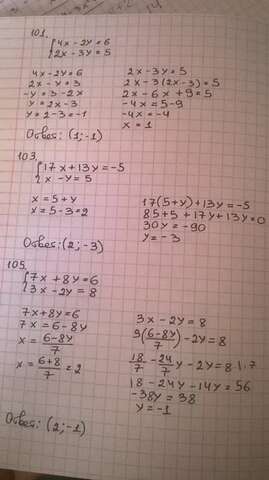 101.
{4x - 2y = 6
{2x - 3y = 5
4x - 2y = 6
2x - y = 3
-y = 3 - 2x
y = 2x - 3
y = 2 - 3 = -1
2x - 3y = 5
2x - 3(2x - 3) = 5
2x - 6x + 9 = 5
-4x = 5 - 9
-4x = -4
x = 1
Ответ: (1; -1)
103.
{17x + 13y = -5
{x - y = 5
x = 5 + y
x = 5 - 3 = 2
17(5 + y) + 13y = -5
85 + 5 + 17y + 13y = 0
30y = -90
y = -3
Ответ: (2; -3)
105.
{7x + 8y = 6
{3x - 2y = 8
7x + 8y = 6
7x = 6 - 8y
x = (6 - 8y)/7
x = (6 + 8)/7 = 2
3x - 2y = 8
3((6 - 8y)/7) - 2y = 8
18/7 - 24/7 y - 2y = 8 | · 7
18 - 24y - 14y = 56
-38y = 38
y = -1
Ответ: (2; -1)